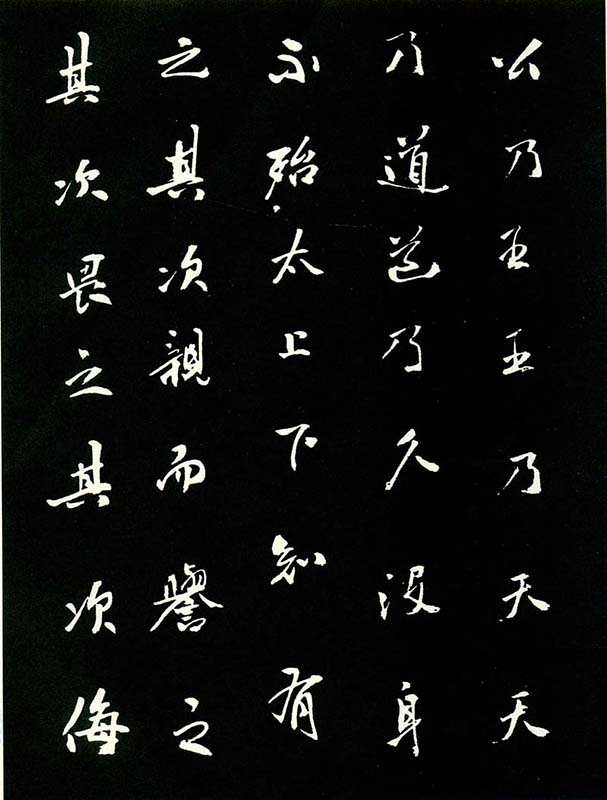 公乃王王乃天天
乃道道乃久没身
不殆太上下知有
之其次親而譽之
其次畏之其次侮